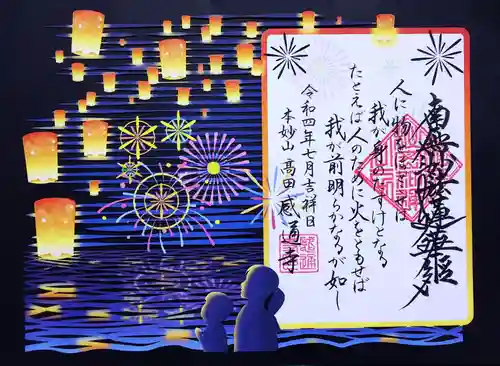 南無妙法蓮華経
人に物をほどこせば
我が身のたすけとなる
たとえば人のために火をともせば
我が前明らかなるが如し
令和四年七月吉祥日
本妙山 高田感通寺